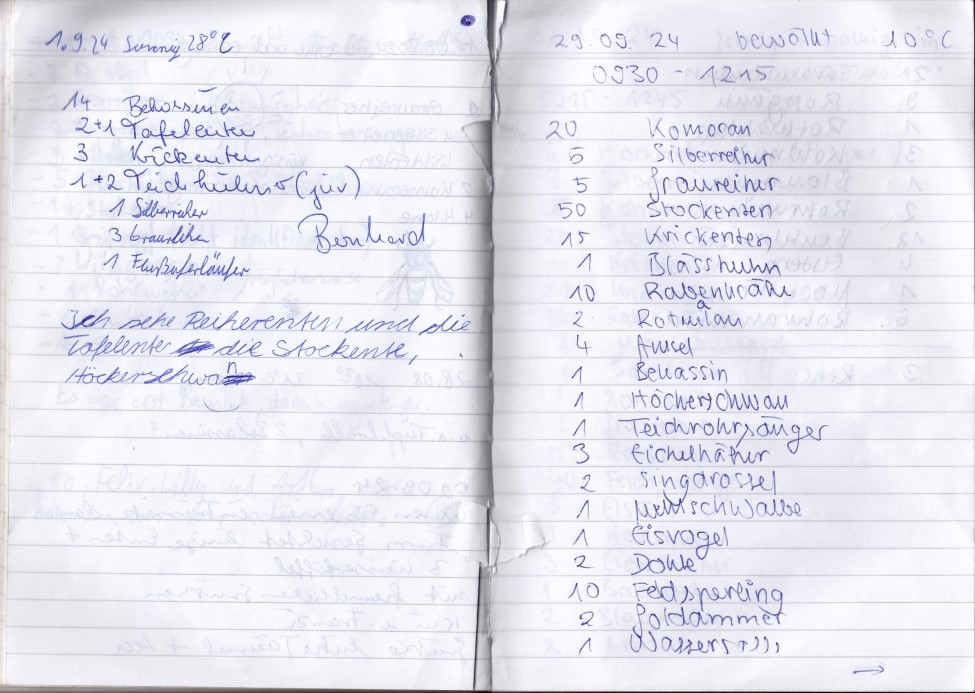 1.9.24 Sonnig 28°C
14 Bekassinen
2+1 Tafelenten
3 Krickenten
1+2 Teichhühner (juv)
1 Silberreiher
3 Graureiher
Bernhard
1 Flußuferläufer
Ich sehe Reiherenten und die
Tafelente die Stockente,
Höckerschwan
29.09.24 bewölkt 10°C
0930 - 1215
20 Komoran
5 Silberreiher
5 Graureiher
50 Stockenten
15 Krickenten
1 Blässhuhn
10 Rabenkrähe
2 Rotmilan
4 Amsel
1 Bekassin
1 Höckerschwan
1 Teichrohrsänger
3 Eichelhäher
2 Singdrossel
1 Mehlschwalbe
1 Eisvogel
2 Dohle
10 Feldsperling
2 Goldammer
1
→